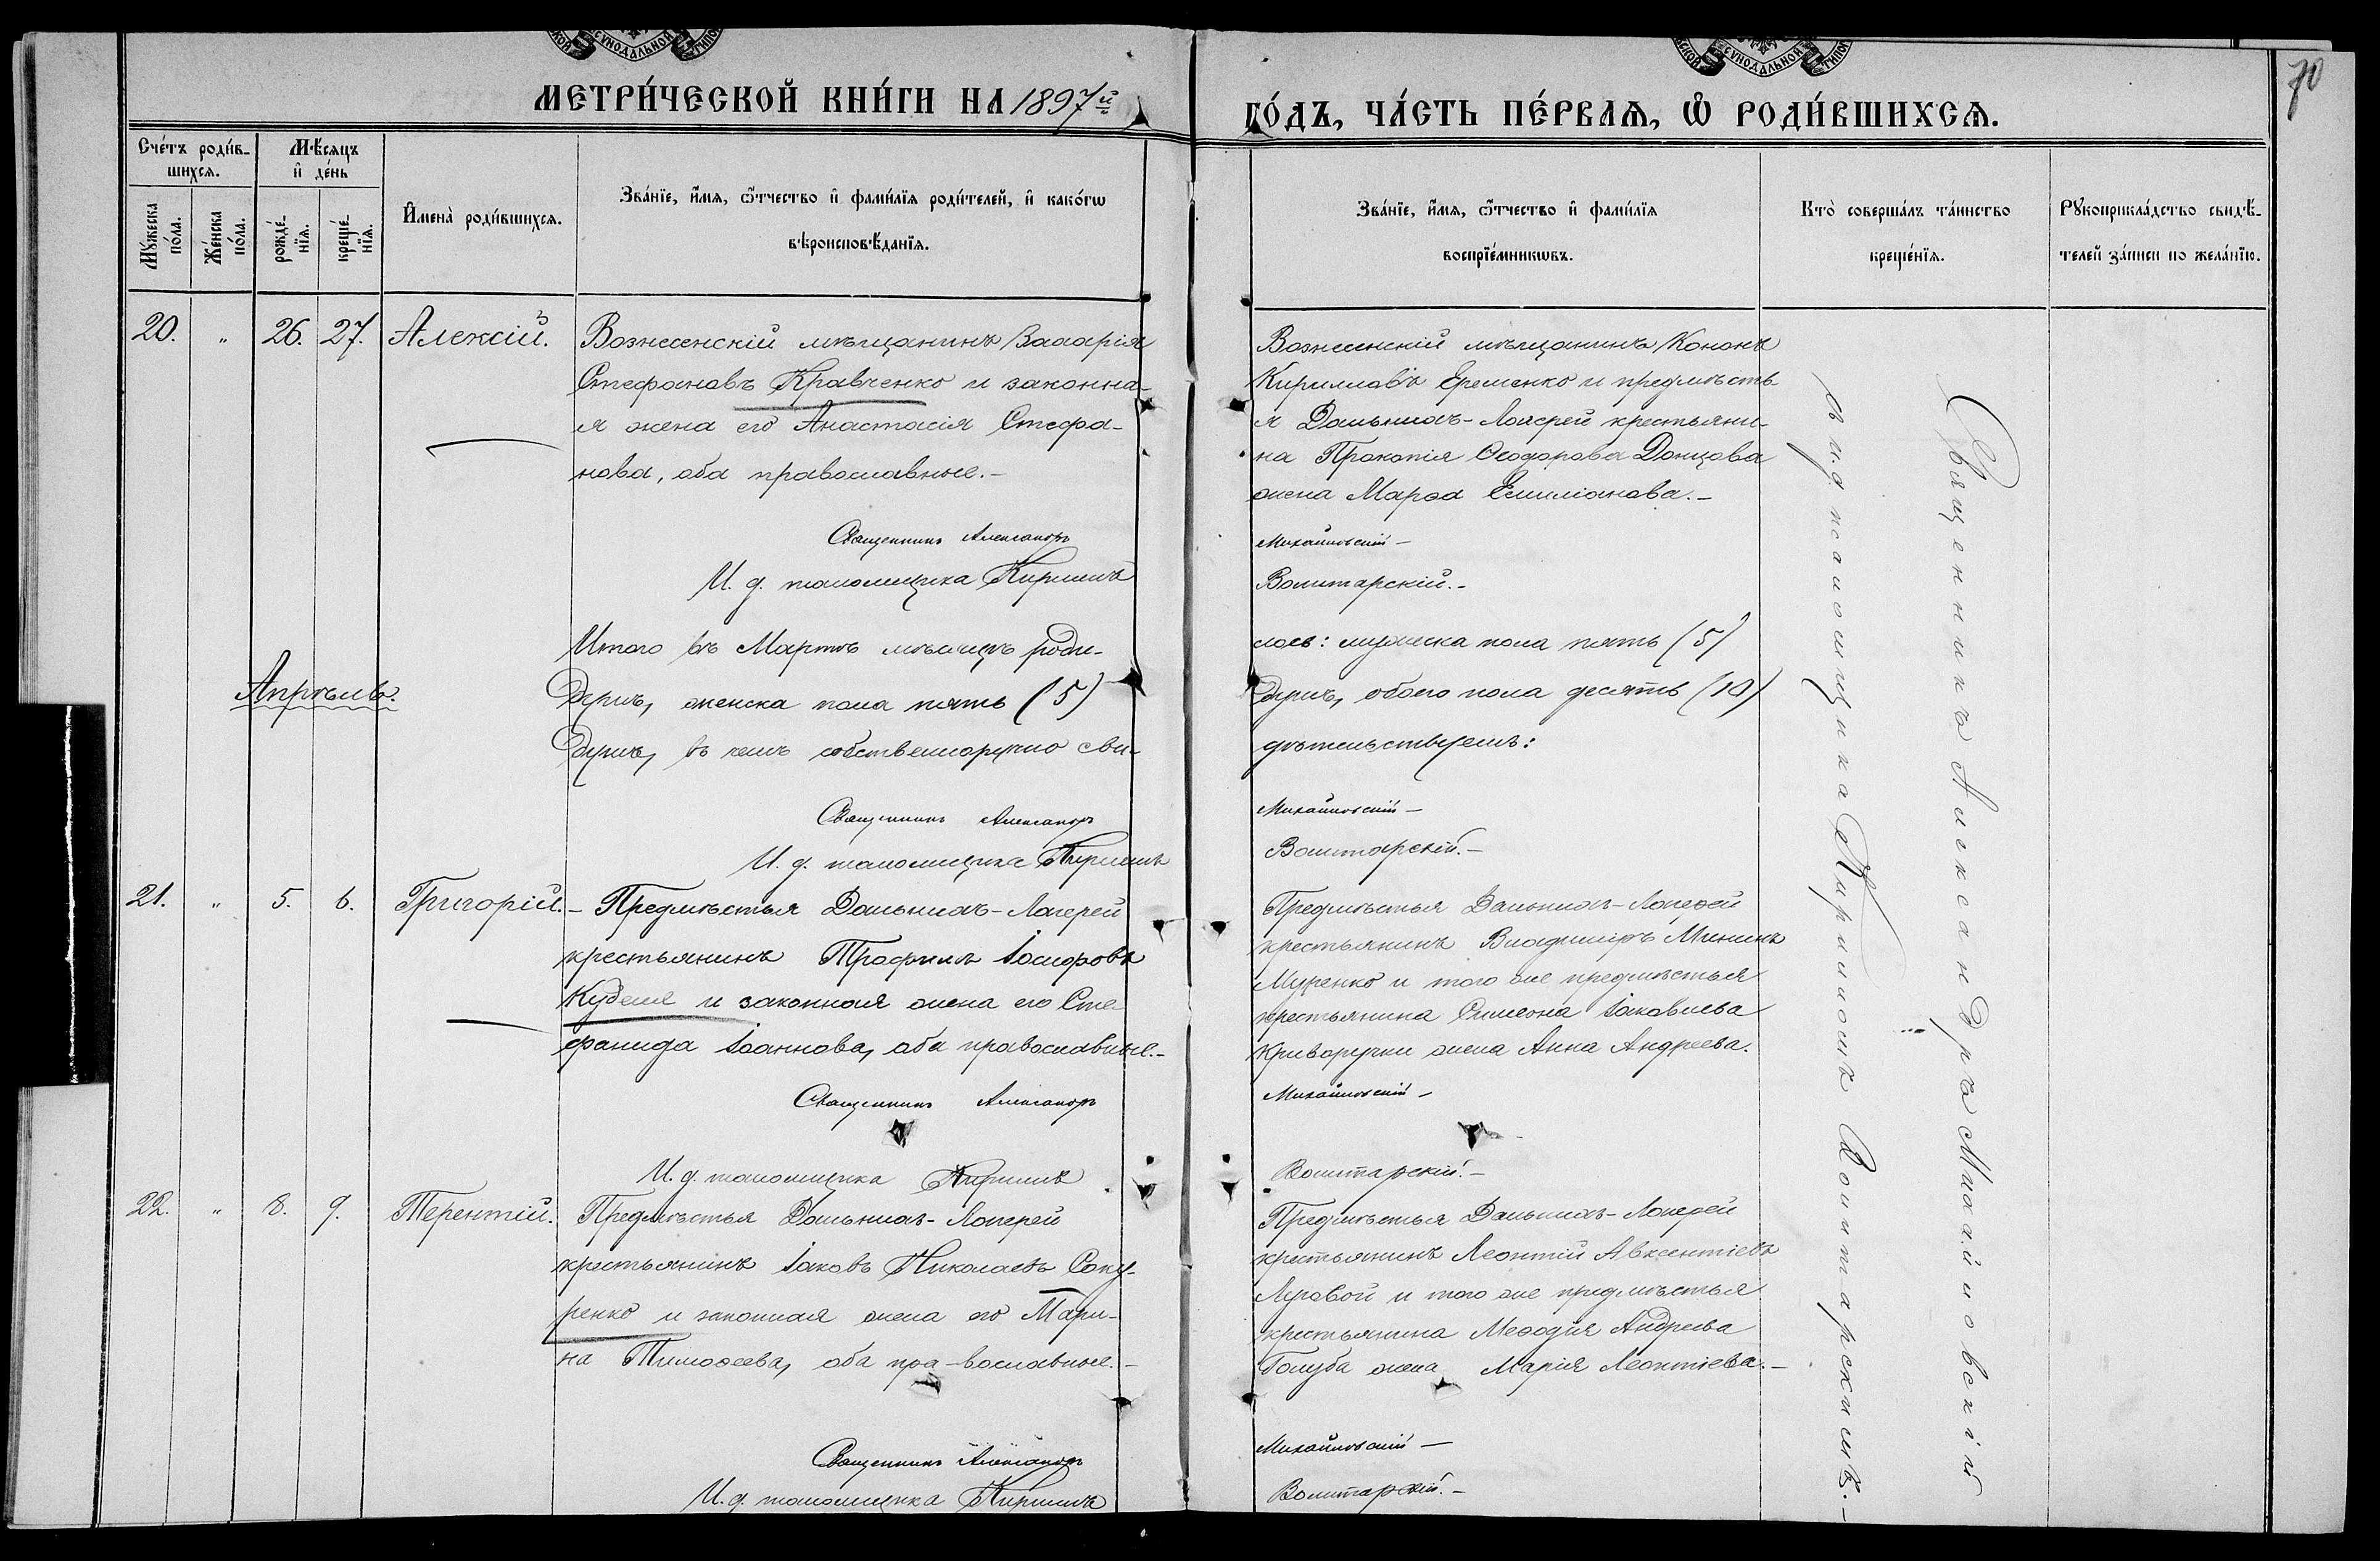 МЕТРИ́ЧЕСКОЙ КНИ́ГИ НА 1897й
ГО́ДЪ, ЧА́СТЬ ПЕ́РВАѦ, Ѡ҆ РОДИ́ВШИХСѦ.
70
Сче́тъ роди́в-
шихсѧ.
Мѣ́сѧцъ
и҆ де́нь
Мꙋ́жеска
по́ла.
Же́нска
по́ла.
рожде́-
нїѧ.
креще́-
нїѧ.
И҆мена̀ роди́вшихсѧ.
Зва́нїе, и҆́мѧ, ѻ҆́тчество и҆ фами́лїѧ роди́телей, и҆ како́гѡ
вѣроисповѣ́данїѧ.
Зва́нїе, и҆́мѧ, ѻ҆́тчество и҆ фами́лїѧ
воспрїе́мникѡвъ.
Кто̀ соверша́лъ та́инство
креще́нїѧ.
Рꙋкоприкла́дство свидѣ́-
телей за́писи по жела́нїю.
20. " 26. 27. Алексій.
Вознесенскій мѣщанинъ Захарія
Стефановъ Кравченко и законна-
я жена его Анастасія Стефа-
нова, оба православные.-
Священникъ Александръ
И. д. псаломщика Кириллъ
Вознесенскій мѣщанинъ Кононъ
Кирилловъ Еременко и предмѣсть
я Дальнихъ-Лагерей крестьяни-
на Прокопія Ѳеодорова Донцова
жена Марѳа Емиліанова.-
Михайловскій-
Воитарскій.-
Итого въ Мартѣ мѣсяцѣ роди-
лось: мужеска пола пять (5)
Апрѣль.
душъ, женска пола пять (5)
душъ, обоего пола десять (10)
душъ, въ чемъ собственноручно сви-
дѣтельствуемъ:
Священникъ Александръ
Михайловскій-
И. д. псаломщика Кириллъ
Воитарскій.-
21. " 5. 6. Григорій.-
Предмѣстья Дальнихъ-Лагерей
крестьянинъ Трофимъ Іосифовъ
Куделя и законная жена его Сте-
фанида Іоаннова, оба православные.-
Священникъ Александръ
И. д. псаломщика Кириллъ
Предмѣстья Дальнихъ-Лагерей
крестьянинъ Владиміръ Мининъ
Муренко и того же предмѣстья
крестьянина Симеона Іаковлева
Криворучки жена Анна Андреева.
Михайловскій-
Воитарскій.-
22. " 8. 9. Терентій.
Предмѣстья Дальнихъ-Лагерей
крестьянинъ Іаковъ Николаевъ Соку-
ренко и законная жена его Мари-
на Тимоѳеева, оба пра-вославные.-
Священникъ Александръ
И. д. псаломщика Кириллъ
Предмѣстья Дальнихъ-Лагерей
крестьянинъ Леонтій Авксентіевъ
Луговой и того же предмѣстья
крестьянина Меѳодія Андреева
Голуба жена Марія Леонтіева.-
Михайловскій-
Воитарскій.-
Священникъ Александръ Михайловскій
съ и. д. псаломщика Кирилломъ Воитарскимъ.-